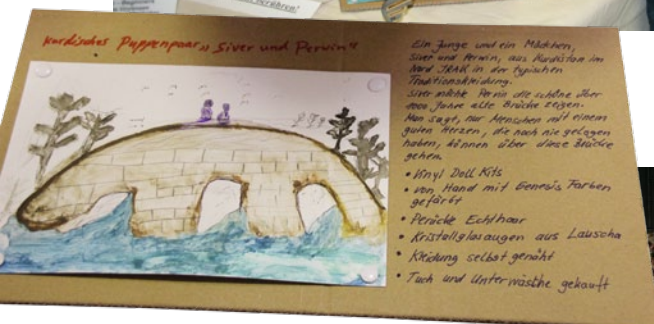 Kurdisches Puppenpaar „Siver und Perwin"
Ein Junge und ein Mädchen,
Siver und Perwin, aus Kurdistan im
Nord IRAK in der typischen
Traditionskleidung.
Siver möchte Perwin die schöne über
1000 Jahre alte Brücke zeigen.
Man sagt, nur Menschen mit einem
guten Herzen, die noch nie gelogen
haben, können über diese Brücke
gehen.
• Vinyl Doll Kits
• von Hand mit Genesis Farben
gefärbt
• Perücke Echthaar
• Kristallglasaugen aus Lauscha
• Kleidung selbst genäht
• Tuch und Unterwäsche gekauft